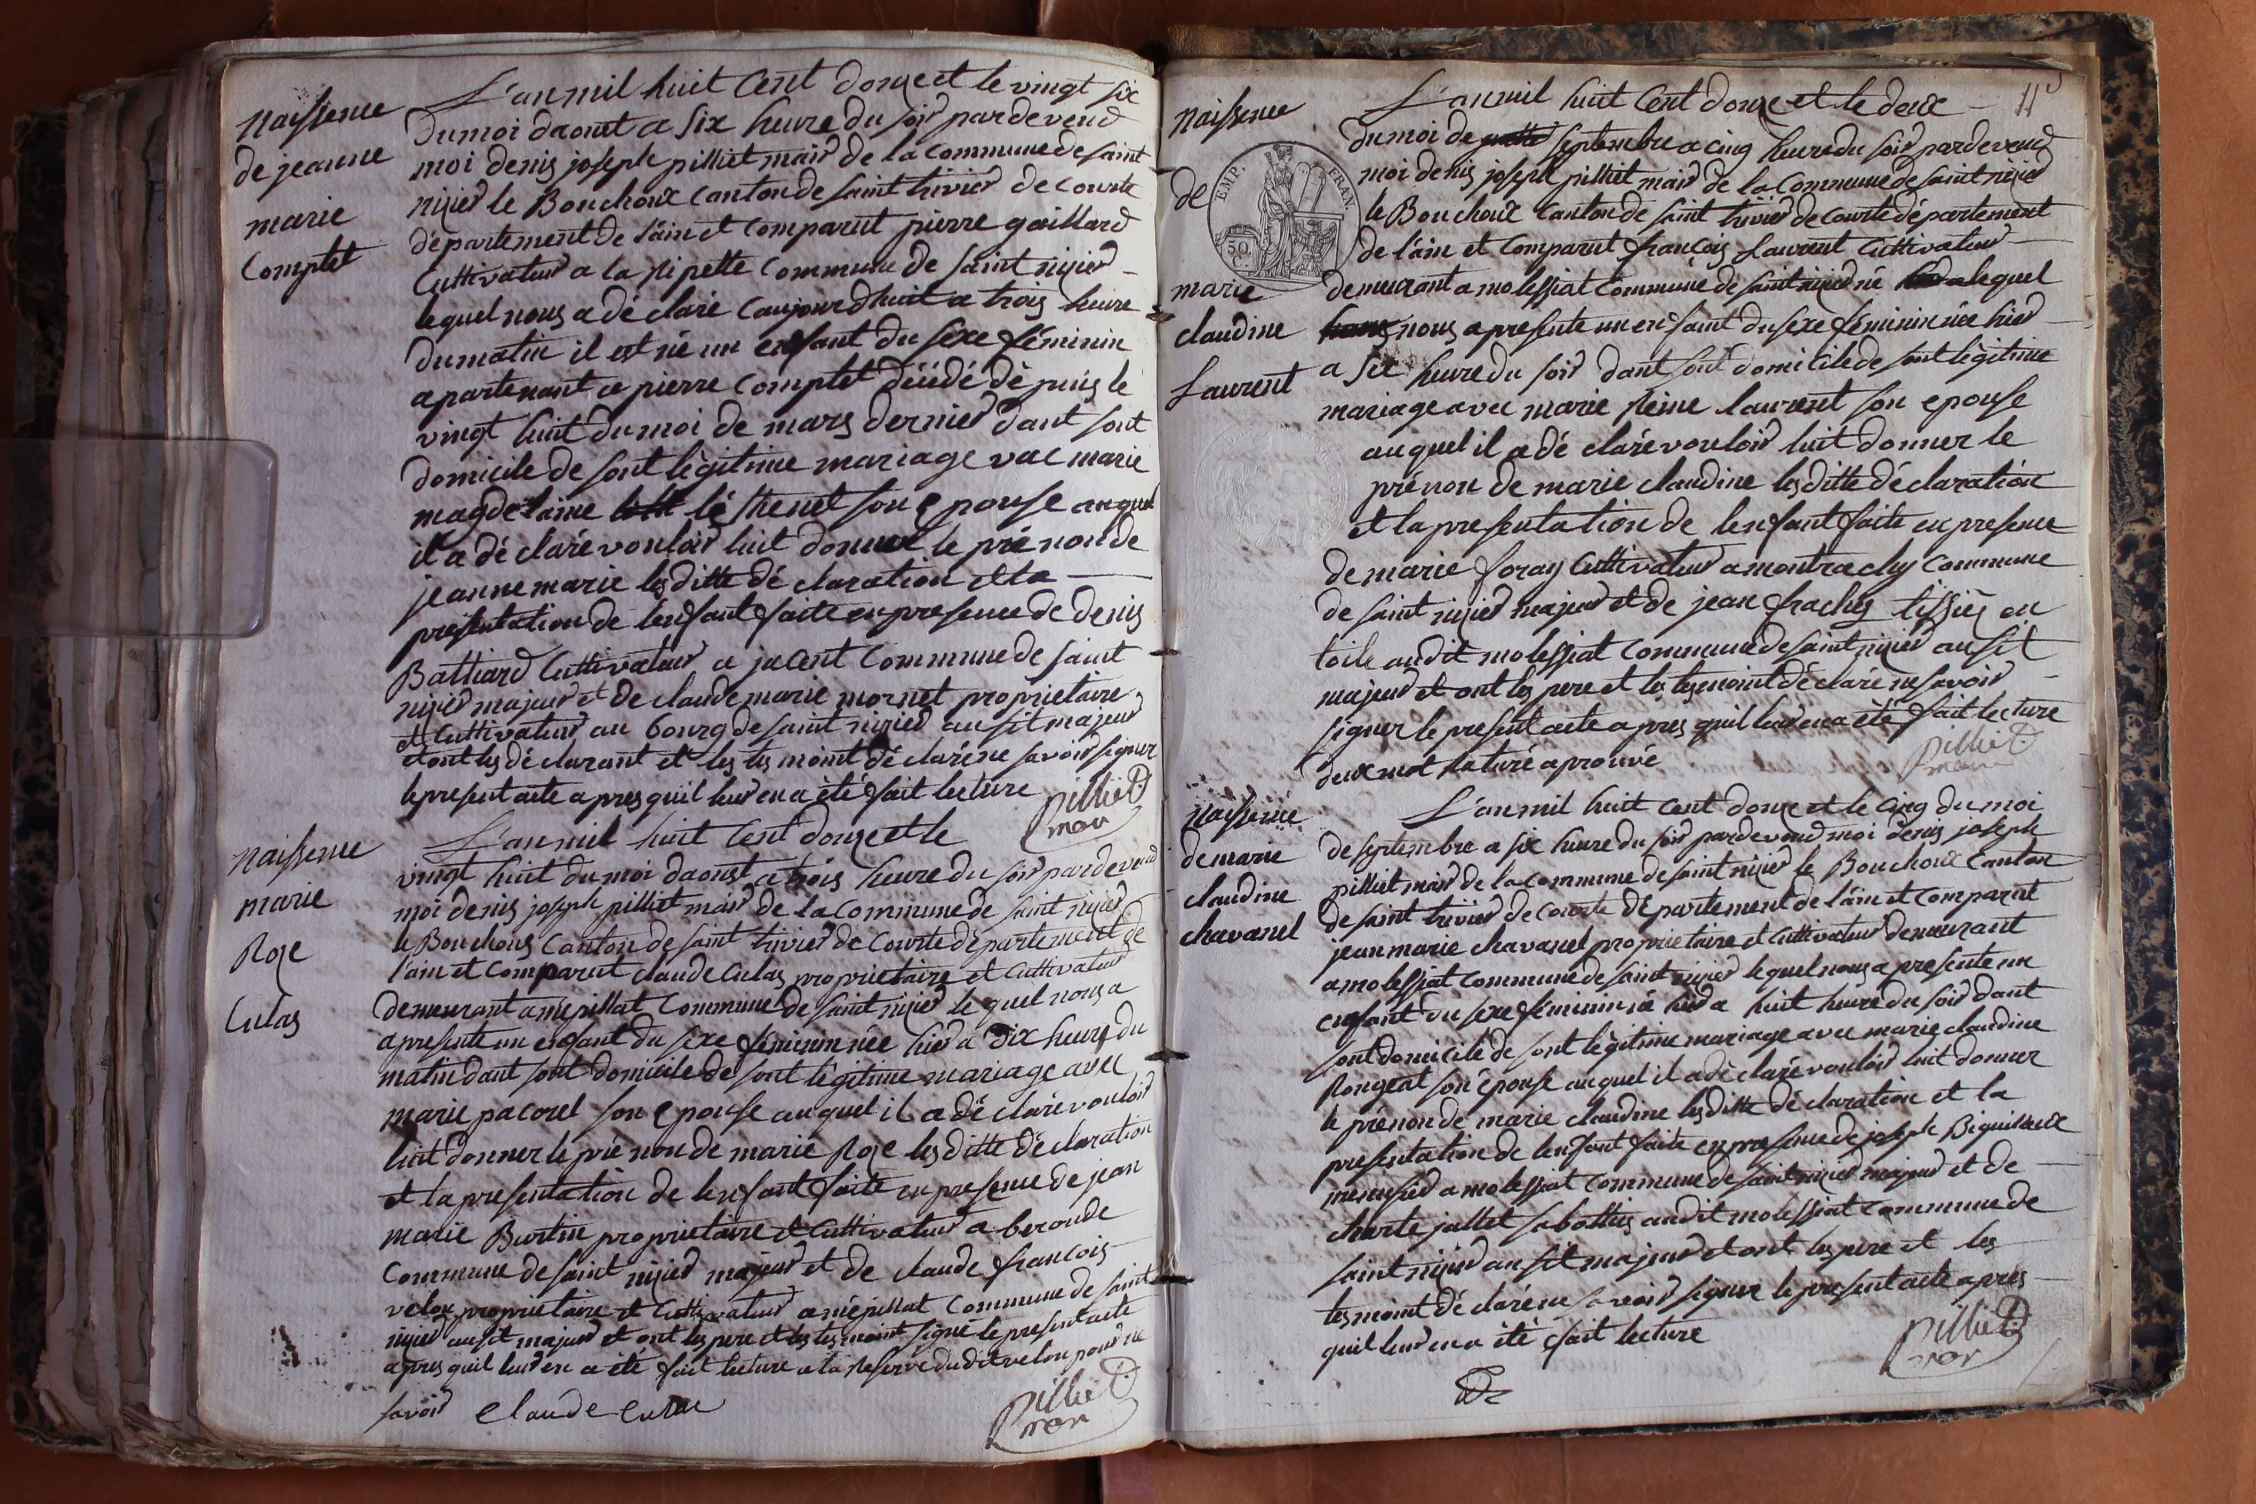 naissence
de jeanne
marie
Complet
L'an mil huit Cent douze et le vingt six
du moi daoust a six heure du soir pardevend
moi denis joseph pilliet mair de la commune de saint
nizier le Bouchoux canton de saint trivier de courte
département de l'ain et comparut pierre gaillard
Cultivateur a la pipette commune de saint nizier
lequel nous a déclaré caujourdhuit a trois heure
du matin il est né un enfant du sexe féminin
apartenant a pierre complet décédé dépuis le
vingt huit du moi de mars dernier dant sont
domicile de sont légitime mariage vac marie
magdelaine thenet son epouse auquel
il a dé claré vouloir luit donner le prénon de
jeanne marie les ditte dé claration et la
présentation de lenfant faite en presence de denis
Batliard Cultivateur a jacent commune de saint
nizier majeur et de claude marie mornet proprietaire
et Cultivateur au bourg de saint nizier ausit majeur
et ont les dé clarant et les tesmoint dé claré ne savoir signer
le present acte apres quil leur en a été fait lecture
pilliet
mair
naissence
marie
Roze
Culas
L'an mil huit Cent douze et le
vingt huit du moi daoust a trois heure du soir pardevend
moi denis joseph pilliet mair de la commune de saint nizier
le Bouchous canton de saint trivier de courte département de
l'ain et comparut claude Culas proprietaire et Cultivateur
demeurant a mépillat commune de saint nizier le quel nous a
apresente un enfant du sexe féminin née hier a dix heure du
matin dant sont domicile de sont légitime mariage avec
marie pacoret son epouse auquel il a dé claré vouloir
luit donner le prénon de marie Roze les ditte déclaration
et la presentation de lenfant faite en presence de jean
marie Burtin proprietaire et Cultivateur a beroude
commune de saint nizier majeur et de claude francois
velon proprietaire et Cultivateur a mépillat commune de saint
nizier ausit majeur et ont les pere et les tesmoint signé le present acte
apres quil leur en a été fait lecture a la Reserve dudit velon pour ne
savoir claude culas
pilliet
mair
naissence
de
EMP. FRAN.
50
marie
claudine
Laurent
L'an mil huit Cent douze et le deux
du moi de septembre a cinq heure du soir pardevend
moi denis joseph pilliet mair de la Commune de saint nizier
le Bouchoux canton de saint trivier de courte département
de l'ain et comparut françois Laurent Cultivateur
demeurant a molessiat commune de saint nizier né lequel
nous apresente un enfant du sexe féminin née hier
a six heure du soir dant sont domicile de sont légitime
mariage avec marie Reine laurent son epouse
auquel il a dé claré vouloir luit donner le
prénon de marie claudine les ditte déclaration
et la presentation de lenfant faite en presence
de marie foray Cultivateur a montrachy commune
de saint nizier majeur et de jean frachez tissiér en
toile audit molessiat commune de saint nizier ausit
majeur et ont les pere et les tesmoint déclaré ne savoir
signer le present acte apres quil leur en a été fait lecture
deux mot raturé aprouvé
pilliet
mair
naissence
de marie
claudine
chavanel
L'an mil huit cent douze et le cinq du moi
de septembre a six heure du soir pardevend moi denis joseph
pilliet mair de la commune de saint nizier le Bouchoux canton
de saint trivier de courte département de l'ain et comparut
jean marie chavanel proprietaire et Cultivateur demeurant
a molessiat commune de saint nizier lequel nous a presente un
enfant du sexe féminin né hier a huit heure du soir dant
sont domicile de sont légitime mariage avec marie claudine
Rongeat son épouse auquel il a dé claré vouloir luit donner
le prénon de marie claudine les ditte dé claration et la
presentation de lenfant faite en presence de joseph Biguilleux
menusier a molessiat commune de saint nizier majeur et de
charle jallet sabottier audit molessiat commune de
saint nizier ausit majeur et ont les pere et les
tesmoint dé claré ne savoir signer le present acte apres
quil leur en a été fait lecture
pilliet
mair